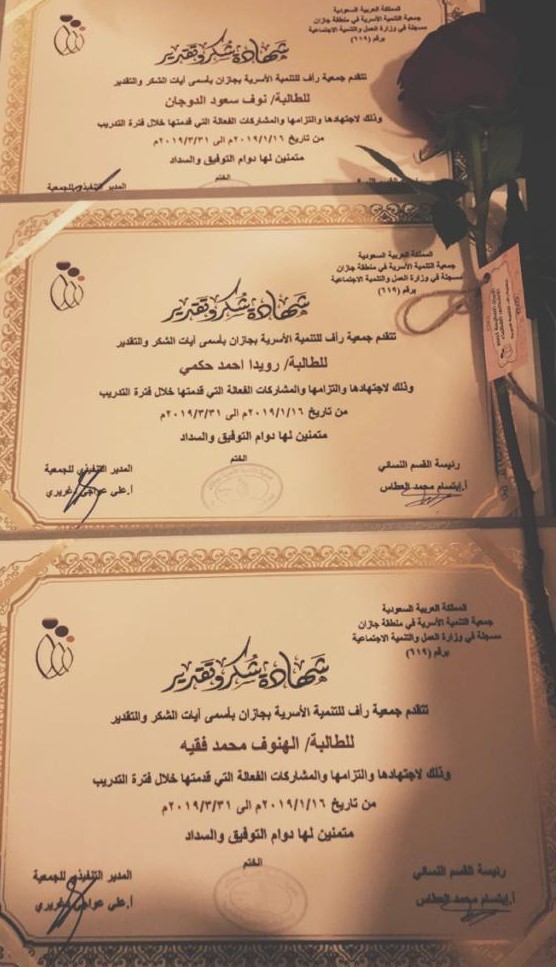 المملكة العربية السعودية
جمعية التنمية الأسرية في منطقة جازان
مسجلة في وزارة العمل والتنمية الاجتماعية
برقم (٦١٩)
شهادة شكر وتقدير
تتقدم جمعية رأف للتنمية الأسرية بجازان بأسمى آيات الشكر والتقدير
للطالبة/ نوف سعود الدوجان
وذلك لاجتهادها والتزامها والمشاركات الفعالة التي قدمتها خلال فترة التدريب
من تاريخ ٢٠١٩/١/١٦م الى ٢٠١٩/٣/٣١م
متمنين لها دوام التوفيق والسداد
الختم
المدير التنفيذي للجمعية
المملكة العربية السعودية
جمعية التنمية الأسرية في منطقة جازان
مسجلة في وزارة العمل والتنمية الاجتماعية
برقم (٦١٩)
شهادة شكر وتقدير
تتقدم جمعية رأف للتنمية الأسرية بجازان بأسمى آيات الشكر والتقدير
للطالبة/ رويدا احمد حكمي
وذلك لاجتهادها والتزامها والمشاركات الفعالة التي قدمتها خلال فترة التدريب
من تاريخ ٢٠١٩/١/١٦م الى ٢٠١٩/٣/٣١م
متمنين لها دوام التوفيق والسداد
رئيسة القسم النسائي
الختم
المدير التنفيذي للجمعية
أ.إبتسام محمد العطاس
أ.علي عواجي مغريري
المملكة العربية السعودية
جمعية التنمية الأسرية في منطقة جازان
مسجلة في وزارة العمل والتنمية الاجتماعية
برقم (٦١٩)
شهادة شكر وتقدير
تتقدم جمعية رأف للتنمية الأسرية بجازان بأسمى آيات الشكر والتقدير
للطالبة/ الهنوف محمد فقيه
وذلك لاجتهادها والتزامها والمشاركات الفعالة التي قدمتها خلال فترة التدريب
من تاريخ ٢٠١٩/١/١٦م الى ٢٠١٩/٣/٣١م
متمنين لها دوام التوفيق والسداد
رئيسة القسم النسائي
الختم
المدير التنفيذي للجمعية
أ.إبتسام محمد العطاس
أ.علي عواجي مغريري